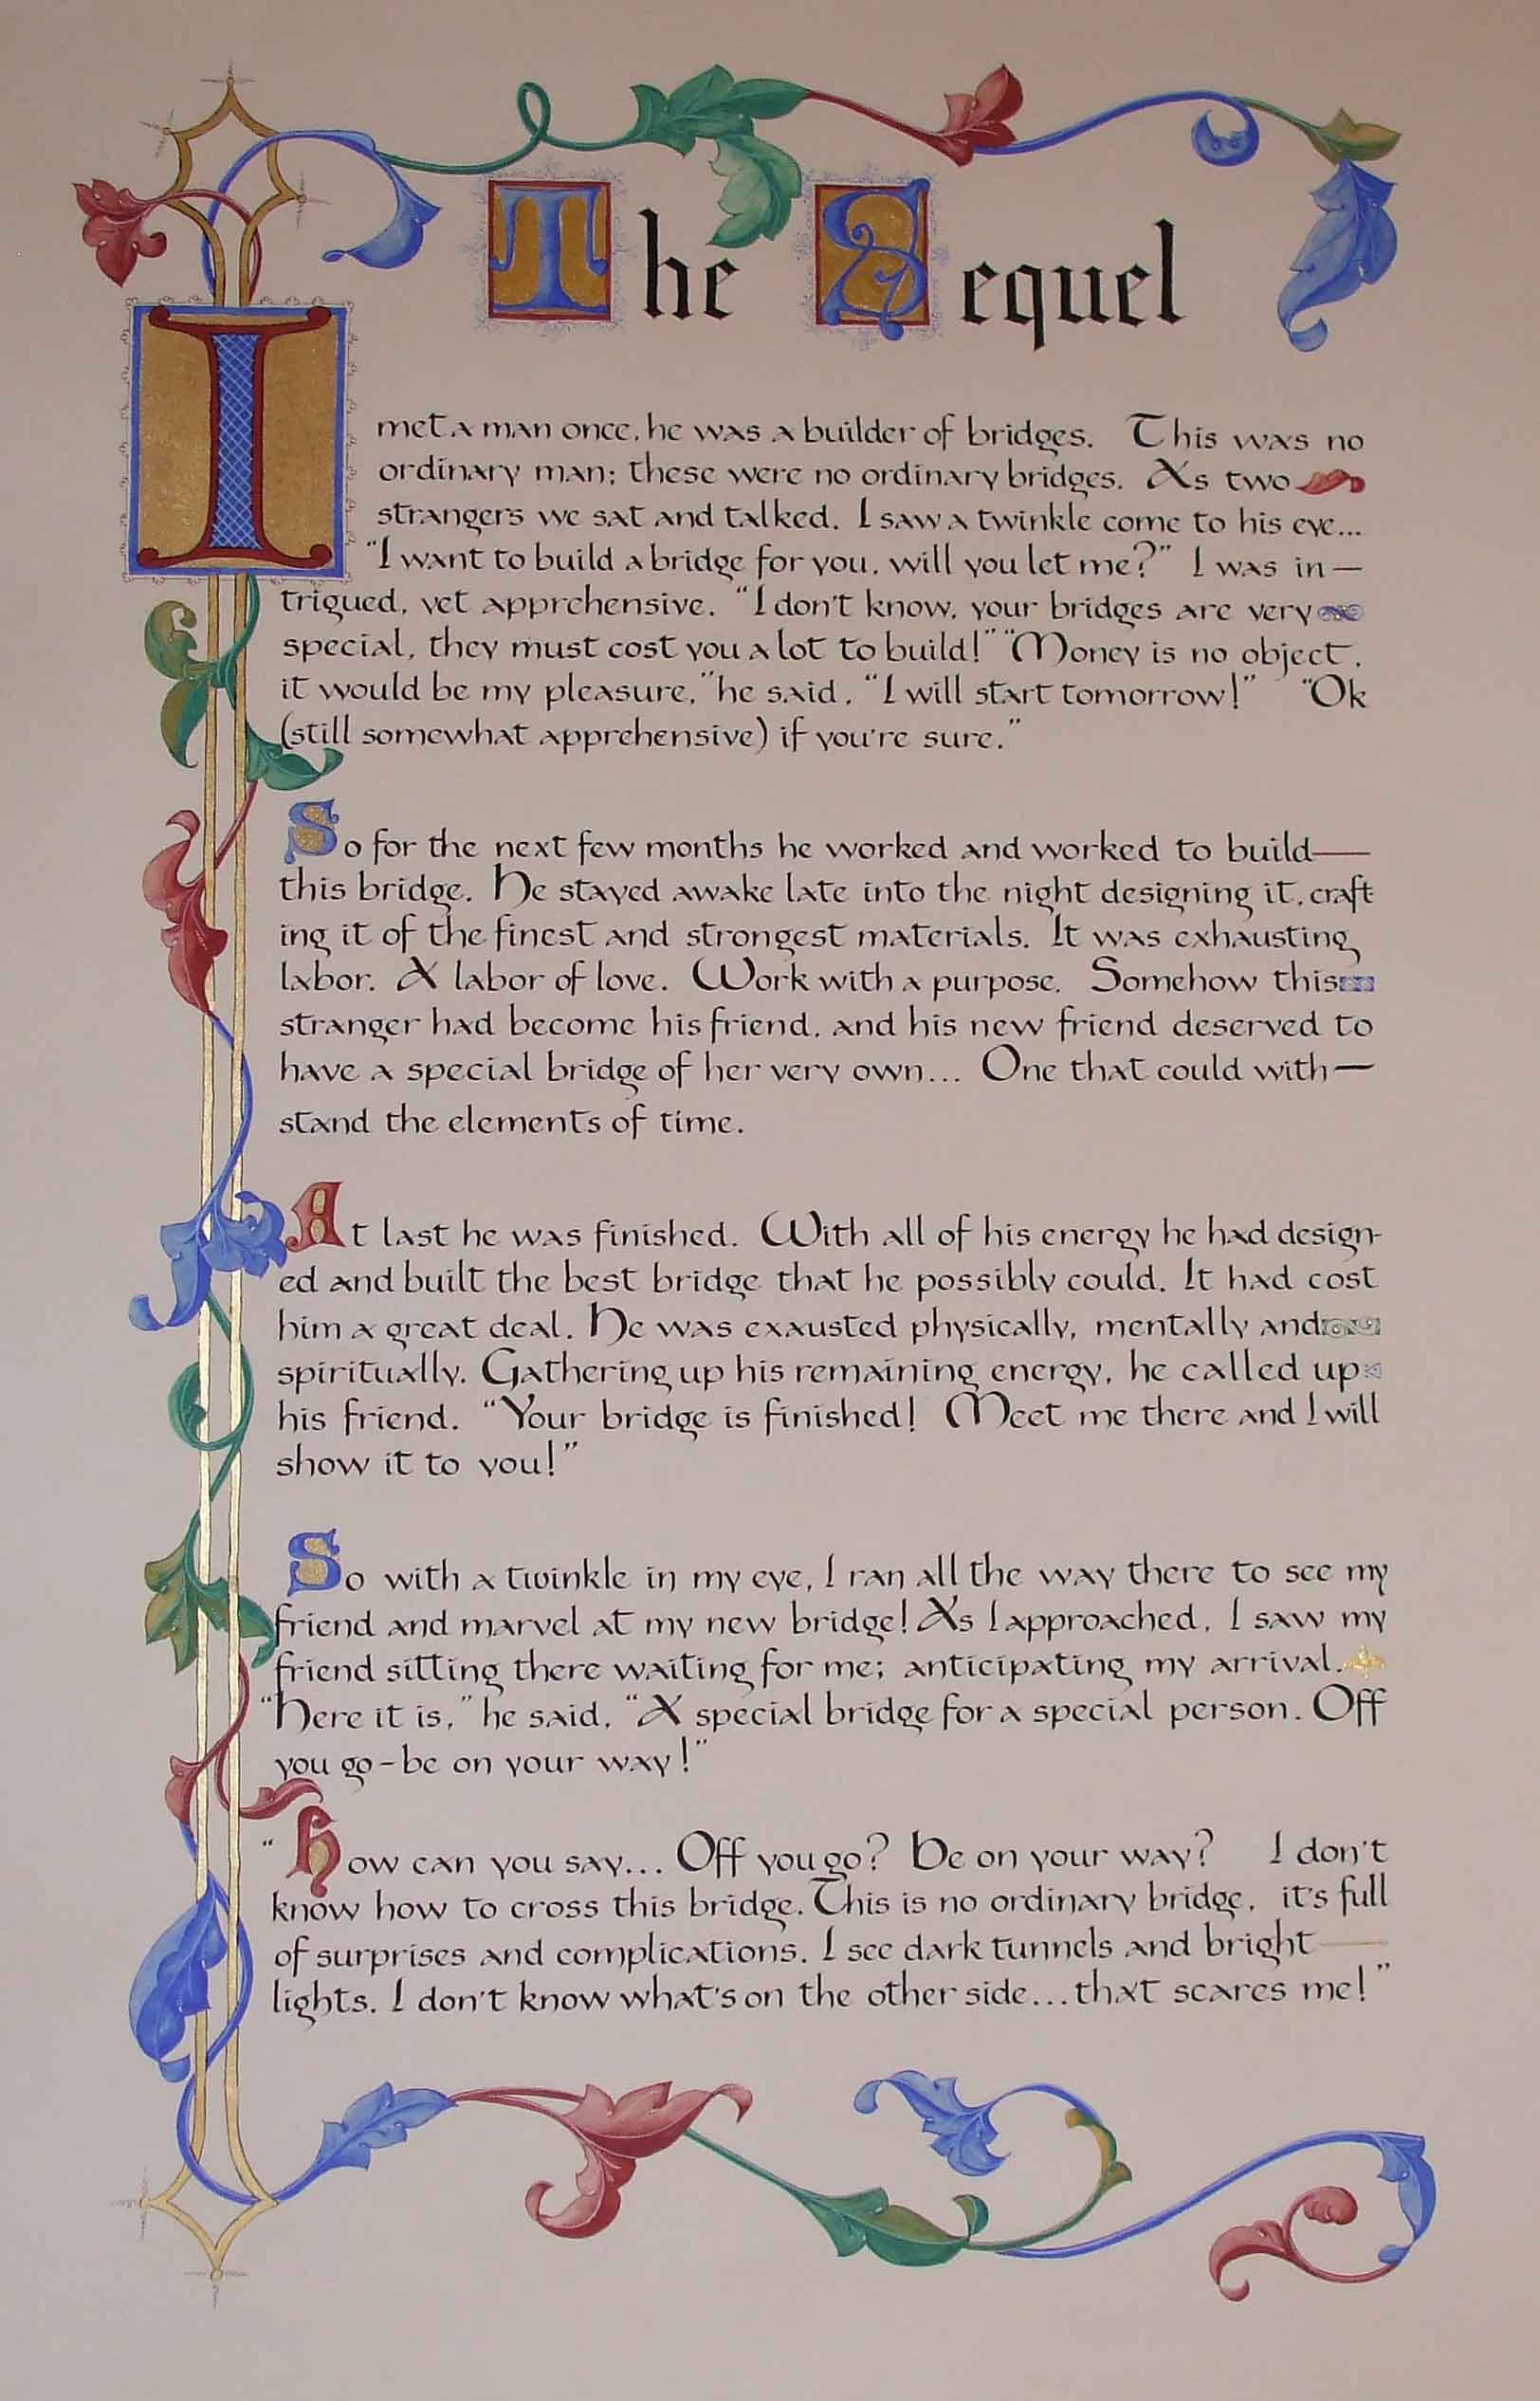 The Sequel
I met a man once, he was a builder of bridges. This was no
ordinary man; these were no ordinary bridges. As two
strangers we sat and talked. I saw a twinkle come to his eye...
"I want to build a bridge for you, will you let me?" I was in—
trigued, yet apprehensive. "I don't know, your bridges are very
special, they must cost you a lot to build!" "Money is no object,
it would be my pleasure," he said, "I will start tomorrow!" "Ok
(still somewhat apprehensive) if you're sure."
So for the next few months he worked and worked to build—
this bridge. He stayed awake late into the night designing it, craft
ing it of the finest and strongest materials. It was exhausting
labor. A labor of love. Work with a purpose. Somehow this
stranger had become his friend, and his new friend deserved to
have a special bridge of her very own... One that could with—
stand the elements of time.
At last he was finished. With all of his energy he had design-
ed and built the best bridge that he possibly could. It had cost
him a great deal. He was exausted physically, mentally and
spiritually. Gathering up his remaining energy, he called up
his friend. "Your bridge is finished! Meet me there and I will
show it to you!"
So with a twinkle in my eye, I ran all the way there to see my
friend and marvel at my new bridge! As I approached, I saw my
friend sitting there waiting for me; anticipating my arrival.
"Here it is," he said, "A special bridge for a special person. Off
you go-be on your way!"
"How can you say... Off you go? Be on your way? I don't
know how to cross this bridge. This is no ordinary bridge, it's full
of surprises and complications. I see dark tunnels and bright—
lights. I don't know what's on the other side...that scares me!"